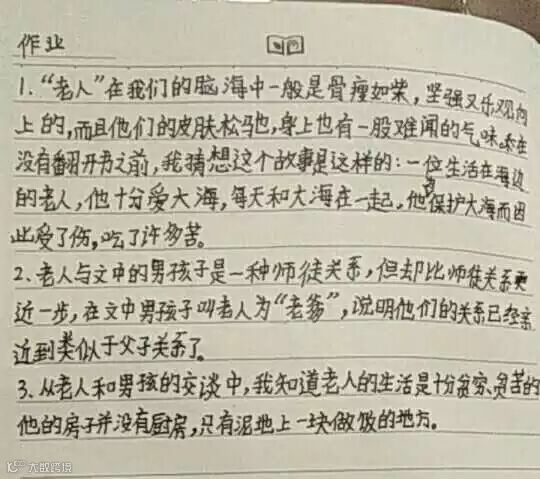 作业
1.“老人”在我们的脑海中一般是骨瘦如柴,坚强又乐观向
上的,而且他们的皮肤松弛,身上也有一股难闻的气味。在
没有翻开书之前,我猜想这个故事是这样的:一位生活在海边
的老人,他十分爱大海,每天和大海在一起,他为保护大海而因
此受了伤,吃了许多苦。
2、老人与文中的男孩子是一种师徒关系,但却比师徒关系更
近一步,在文中男孩子叫老人为“老爹”,说明他们的关系已经亲
近到类似于父子关系了。
3、从老人和男孩的交谈中,我知道老人的生活是十分贫穷、贫苦的
他的房子并没有厨房,只有泥地上一块做饭的地方。
大数跨境